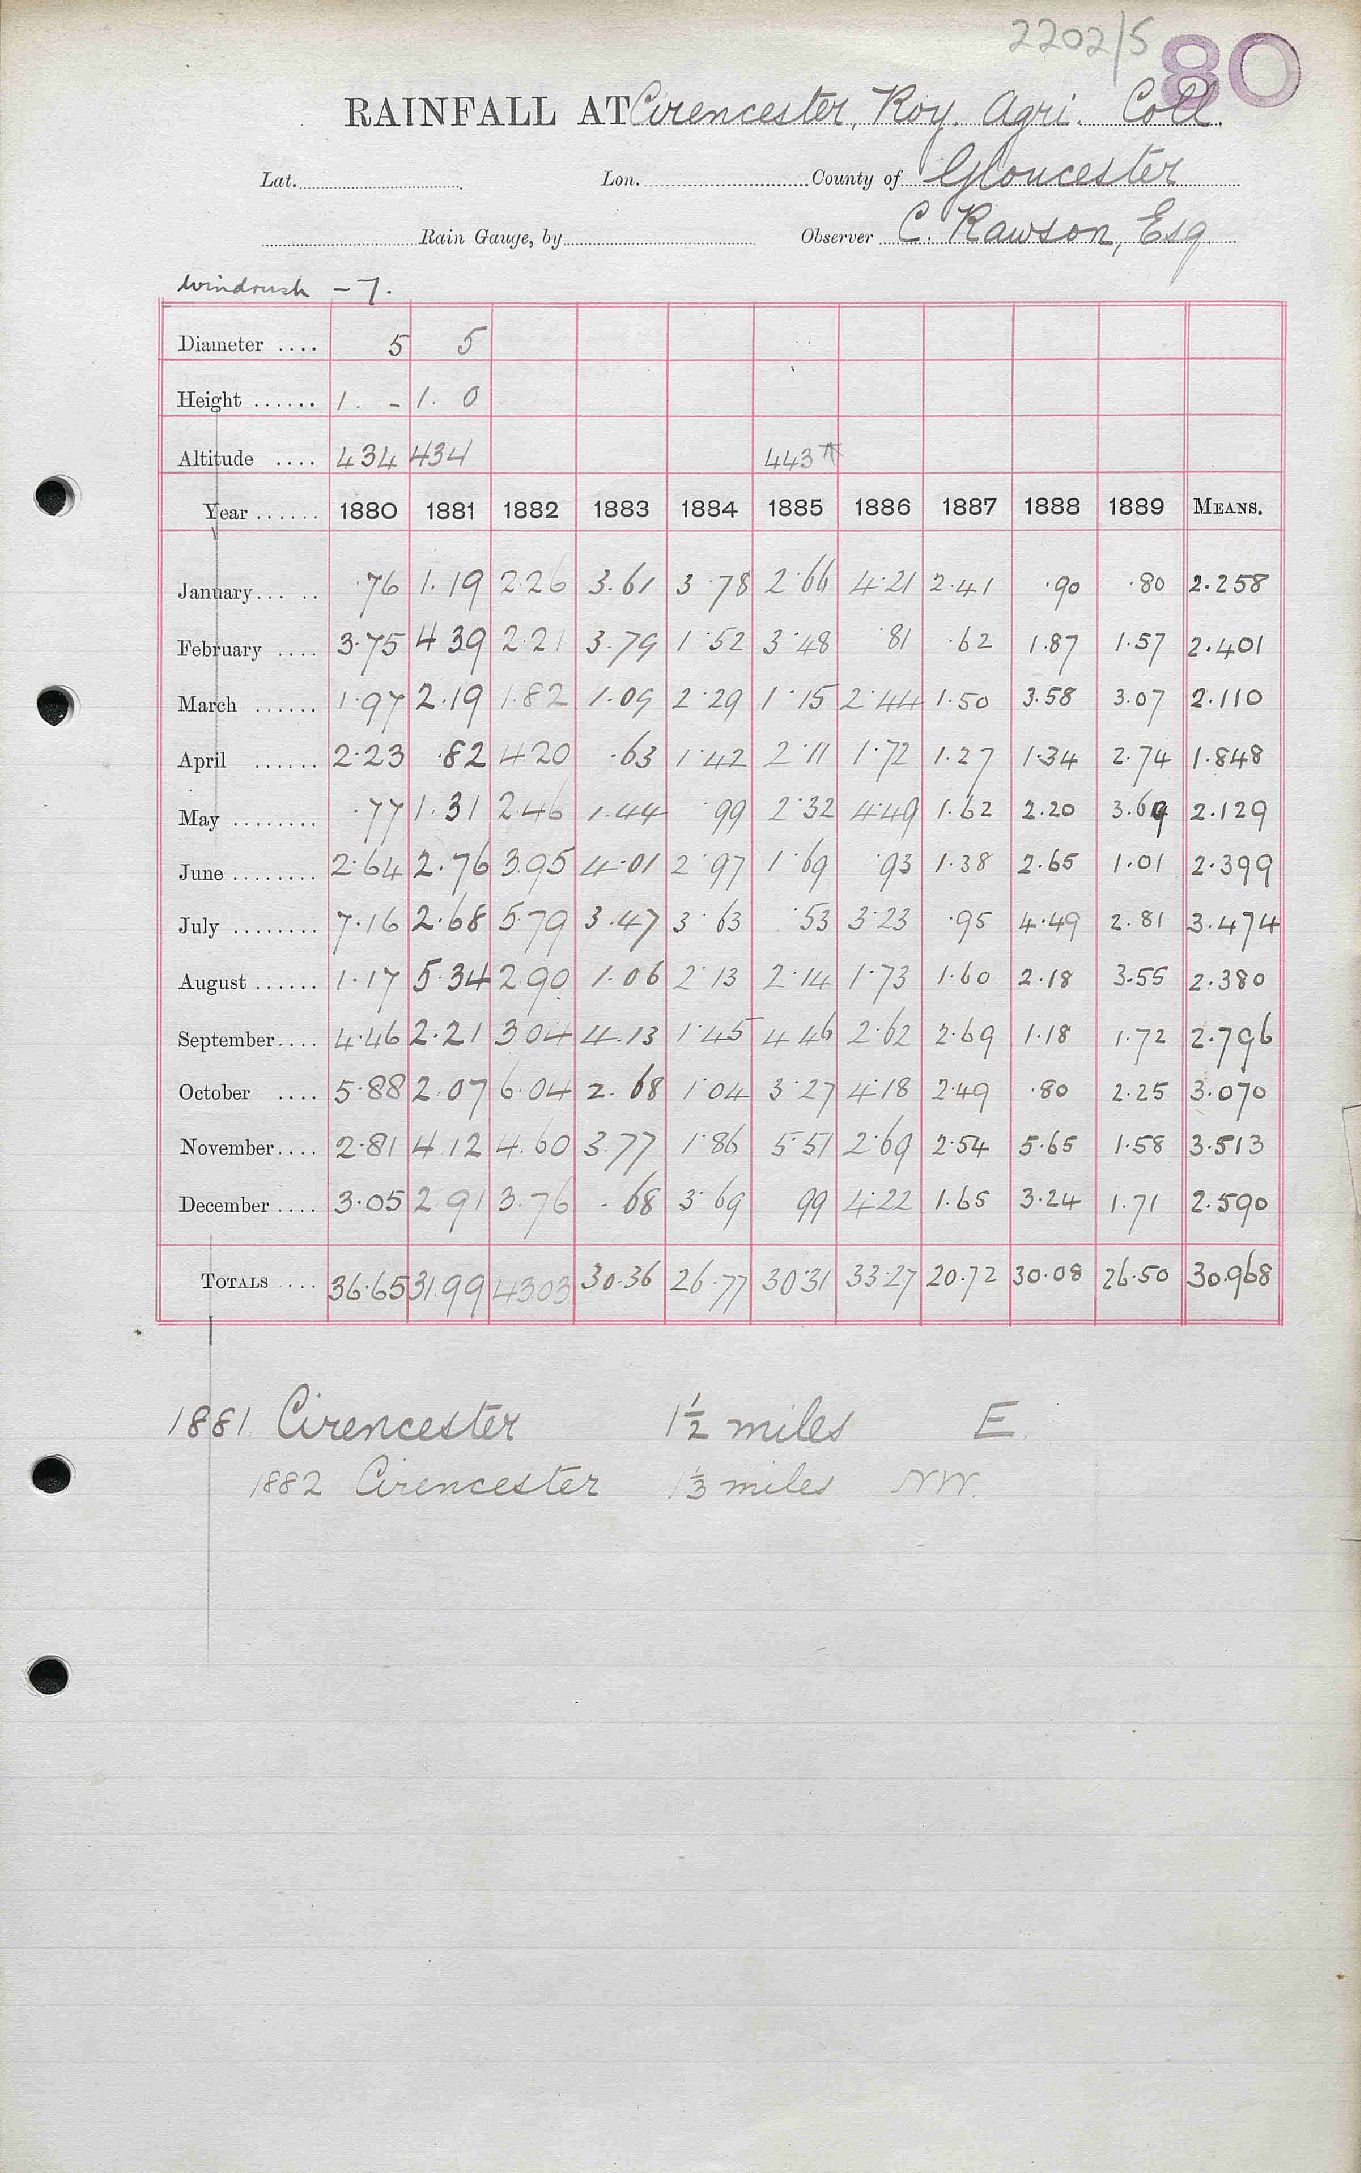 2202/5 80
RAINFALL AT Cirencester, Roy. Agri. Coll.
Lat. Lon. County of Gloucester
Rain Gauge, by Observer C. Rawson, Esq
Windrush - 7.
Diameter .... 5 5
Height ...... 1. - 1. 0
Altitude .... 434 434 443
Year ...... 1880 1881 1882 1883 1884 1885 1886 1887 1888 1889 MEANS.
January ..... ·76 1.19 2.26 3.61 3·78 2·66 4·21 2·41 ·90 ·80 2.258
February .... 3·75 4 39 2·21 3·79 1·52 3·48 81 ·62 1.87 1.57 2.401
March ...... 1·97 2.19 1.82 1.09 2·29 1·15 2·44 1·50 3.58 3.07 2.110
April ...... 2·23 ·82 4 20 ·63 1·42 2·11 1·72 1·27 1·34 2.74 1.848
May ........ ·77 1.31 2.46 1.44 ·99 2·32 4·49 1.62 2.20 3.69 2.129
June ........ 2·64 2.76 3.95 4·01 2·97 1·69 ·93 1·38 2.65 1.01 2.399
July ........ 7·16 2.68 5·79 3.47 3·63 ·53 3·23 ·95 4·49 2.81 3.474
August ...... 1·17 5.34 2.90 1.06 2·13 2·14 1·73 1·60 2·18 3.55 2.380
September .... 4·46 2.21 3.04 4.13 1·45 4 46 2·62 2·69 1·18 1.72 2.796
October .... 5·88 2.07 6·04 2.68 1·04 3·27 4·18 2·49 ·80 2.25 3.070
November .... 2·81 4.12 4.60 3.77 1·86 5·51 2·69 2·54 5·65 1.58 3.513
December .... 3·05 2.91 3.76 ·68 3·69 99 4·22 1.65 3·24 1.71 2.590
TOTALS .... 36·65 31.99 43 03 30·36 26·77 30·31 33·27 20·72 30·08 26·50 30.968
1881 Cirencester 1½ miles E.
1882 Cirencester 1⅓ miles NW.